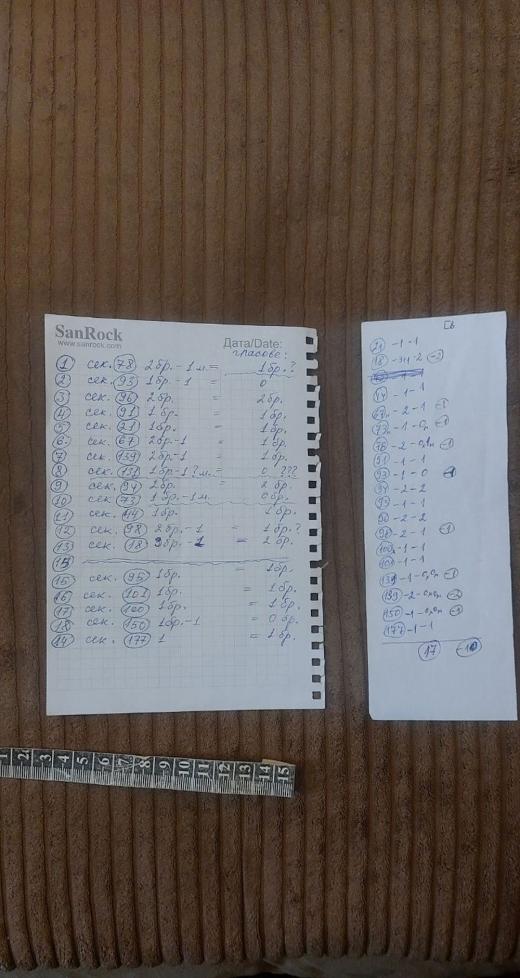 SanRock
www.sanrock.com
Дата/Date:
гласове:
1 сек. 78 2бр.-1м.= 1бр.?
2 сек. 93 1бр.-1 = 0
3 сек. 96 2бр. = 2бр.
4 сек. 91 1бр. = 1бр.
5 сек. 21 1бр. = 1бр.
6 сек. 67 2бр.-1 = 1бр.
7 сек. 139 2бр.-1 = 1бр.
8 сек. 131 1бр-1?м.= 0 ???
9 сек. 94 2бр. = 2бр.
10 сек. 73 1бр.-1м. 0бр.
11 сек. 44 1бр. 1бр.
12 сек. 98 2бр.-1 = 1бр.?
13 сек. 18 3бр.-1 = 2бр.
15 сек. 95 1бр. = 1бр.
16 сек. 101 1бр. = 1бр.
17 сек. 100 1бр. = 1бр.
18 сек. 150 1бр.-1 = 0бр.
сек. 177 1 = 1бр.
21 -1-1
44 -1-1
-2-1 -1
91 -1-1
93 -1-0
94 -2-2
95 -1-1
96 -2-2
98 -2-1 -1
100 -1-1
101 -1-1
177 -1-1
17
1 2 3 4 5 6 7 8 9 10 11 12 13 14 15